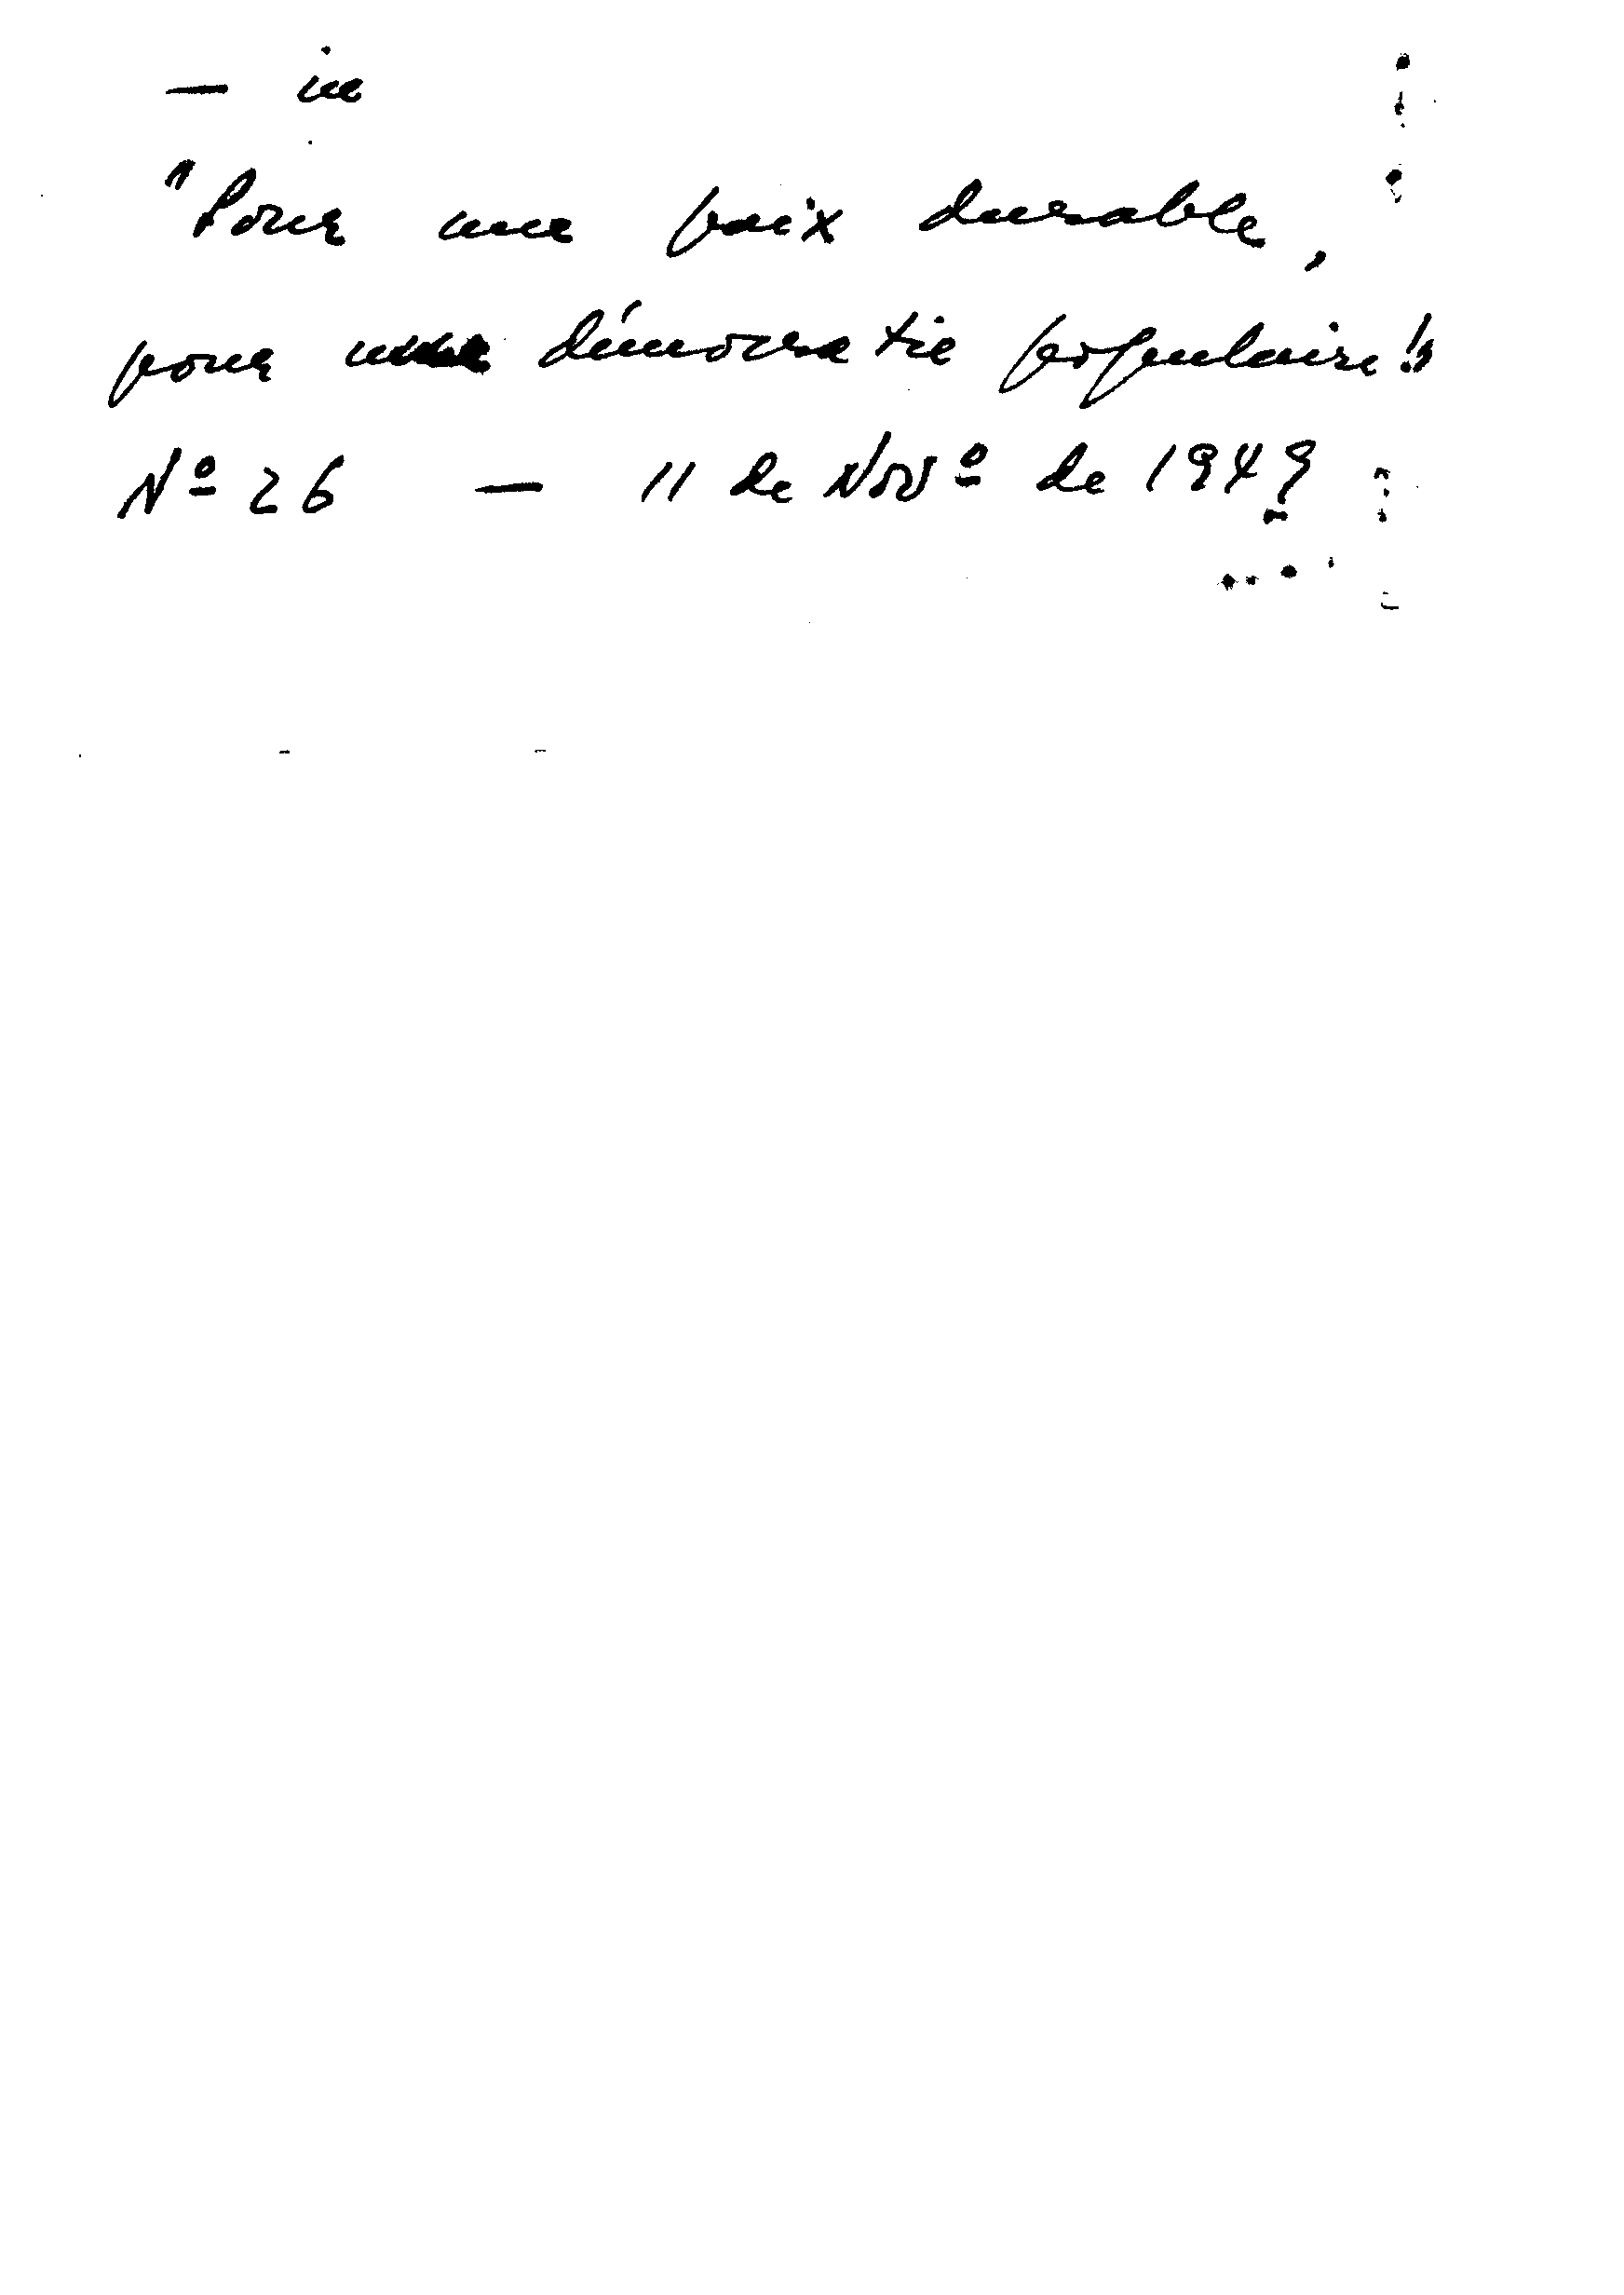 — in
"Pour une paix durable,
pour une démocratie populaire!"
Nº 26 — 11 de Novº de 1949